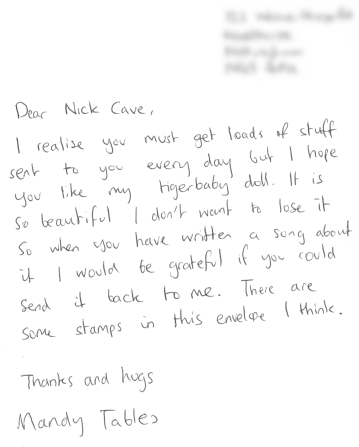 Dear Nick Cave,
I realise you must get loads of stuff
sent to you every day but I hope
you like my tigerbaby doll. It is
so beautiful I don't want to lose it
so when you have written a song about
it I would be grateful if you could
send it back to me. There are
some stamps in this envelope I think.
Thanks and hugs
Mandy Tables